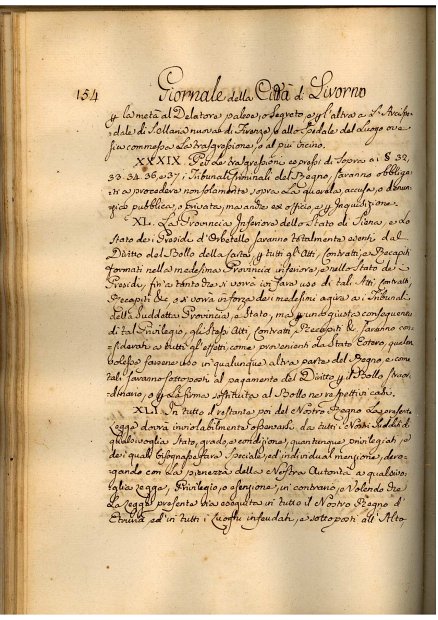 154 Giornale della Città di Livorno
p la metà al Delatore palese, o segreto, e p l'altra a L'Arcispe-
dale di S. M.a nuova di Firenze, o allo spedale del Luogo ove
sia commessa La trasgressione, o al più vicino.
XXXIX. Per Le trasgressioni espressi di Sopra a i §. 32,
33. 34. 36. e 37. i Tribunali Criminali del Regno, saranno obbliga-
ti a procedere non solamente sopra La querela, accusa, o denun-
zia pubblica, o privata, ma anche ex officio, e p Inquisizione.
XL. La Provincia Inferiore dello Stato di Siena, e Lo
Stato de i Presidi d'Orbetello saranno totalmente esenti dal
Diritto del Bollo della Carta p tutti gli Atti, Contratti, e Recapiti
formati nella medesima Provincia inferiore, e nello Stato de i
Presidi, fin a tanto che si vorrà ivi fare uso di tali Atti, Contratti,
Recapiti &c, o si vorrà in forza de i medesimi agire a i Tribunali
della Suddetta Provincia, e Stato, ma p una giusta conseguenza
di tal Privilegio, gli stessi Atti, Contratti, Recapiti &c saranno con-
siderati a tutti gl'effetti, come provenienti La Stato Estero, quando
volesse farsene uso in qualunque altra parte del Regno, e come
tali saranno sottoposti al pagamento del Diritto p il Bollo straor-
dinario, o p La firma sostituita al Bollo ne rispettivi casi.
XLI. In tutto il restante poi del Nostro Regno La presente
Legge dovrà inviolabilmente osservarsi da tutti i Nostri Sudditi di
qualsivoglia Stato, grado, e condizione, quantunque privilegiati, e
de i quali bisognasse fare Speciale, ed individual menzione, dero-
gando con La pienezza della Nostra Autorità a qualsivo-
glia Legge, Privilegio, o esenzione, in contrario, e Volendo che
La Legge presente sia eseguita in tutto il Nostro Regno d'
Etruria, ed in tutti i Luoghi infeudati, e sottoposti all'Alto